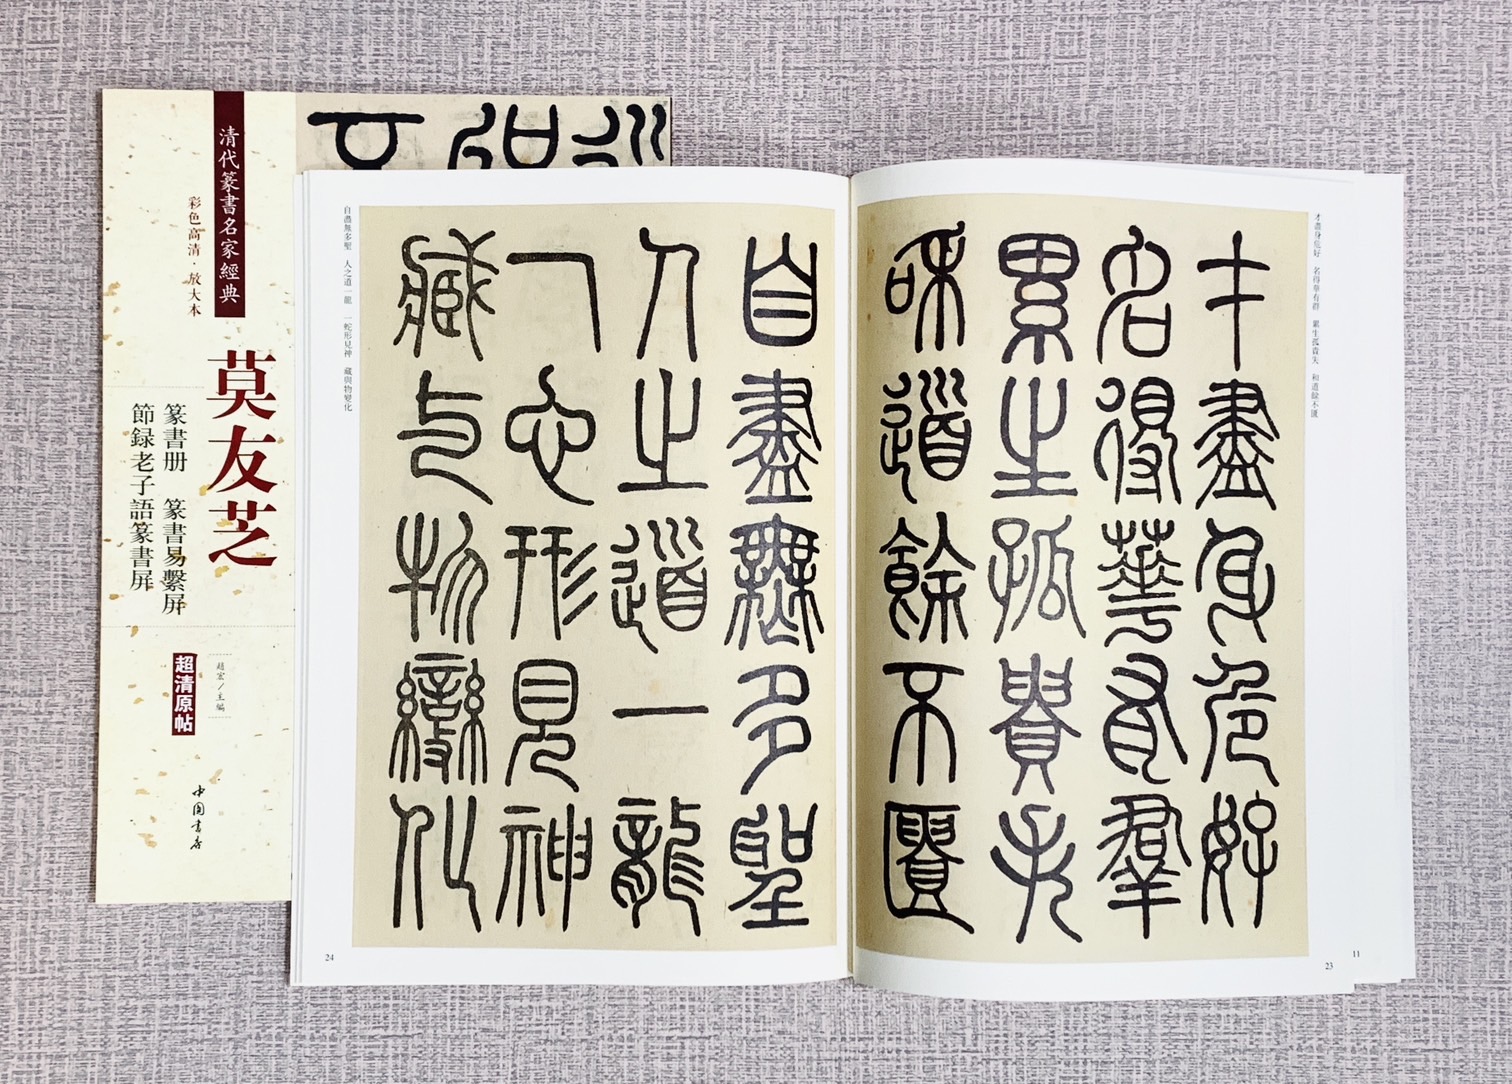 清代篆書名家經典
彩色高清·放大本
莫友芝
篆書册 篆書易繫屏
節録老子語篆書屏
趙宏/主編
超清原帖
中国書店
才盡身危好 名得華有群 累生孤貴失 和道餘不匱
才盡身危好
名得華有羣
累生孤貴失
和道餘不匱
23
11
自盡無多聖
人之道一龍
一它形見神
藏与物變化
自盡無多聖 人之道一龍 一蛇形見神 藏與物變化
24